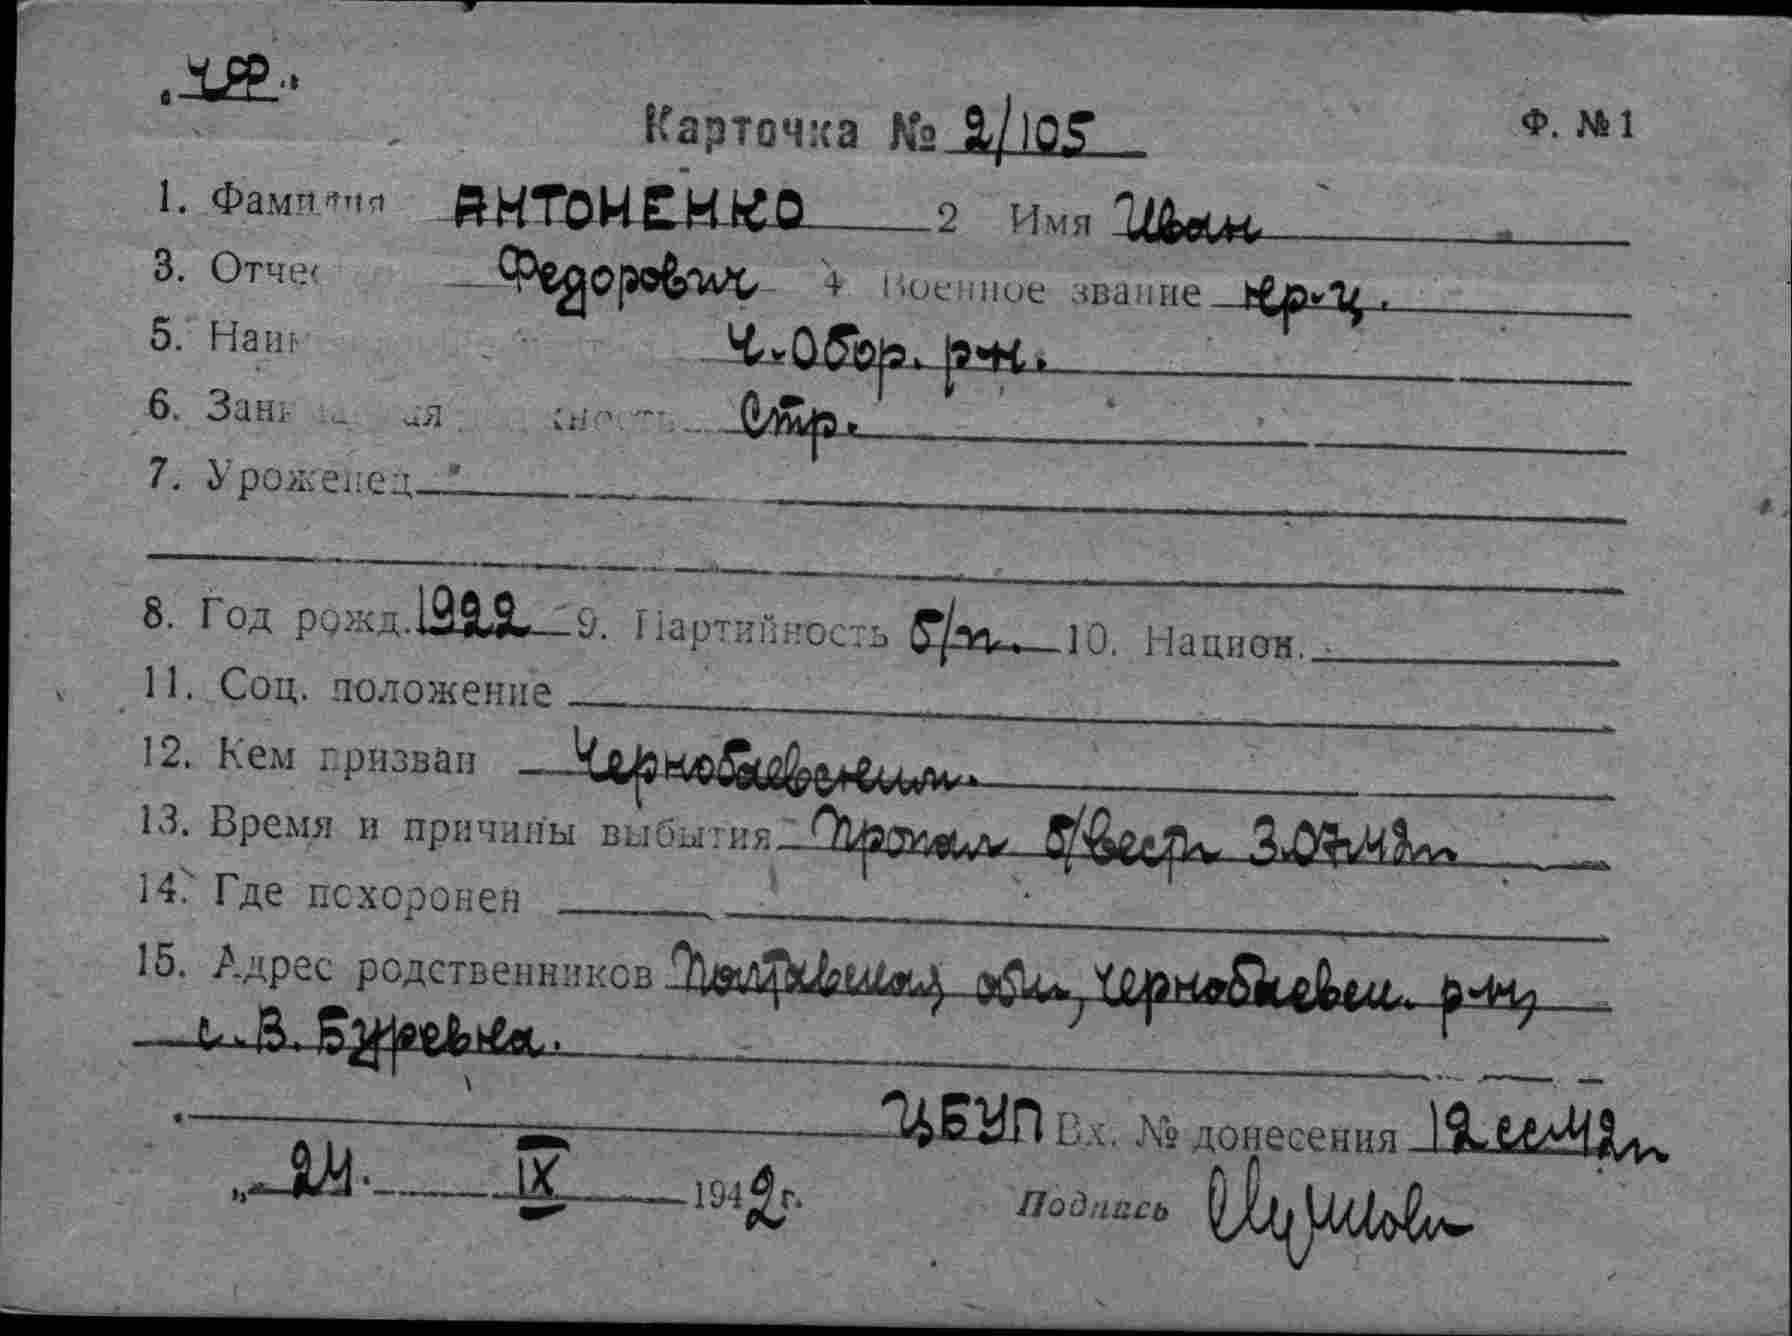 Карточка № 2/105
Ф. № 1
1. Фамилия АНТОНЕНКО 2 Имя Иван
3. Отчес Федорович 4 Военное звание кр-ц.
5. Наим Ч.Обор. р-н.
6. Зан ая ность Стр.
7. Уроженец
8. Год рожд. 1922 9. Партийность б/п. 10. Национ.
11. Соц. положение
12. Кем призван Чернобаевским.
13. Время и причины выбытия Пропал б/вести 3.07.42г
14. Где похоронен
15. Адрес родственников Полтавская обл, Чернобаевск. р-н,
с. В. Буревка.
ЦБУП Вх. № донесения 12 сс-42г
„ 24. IX 1942 г. Подпись